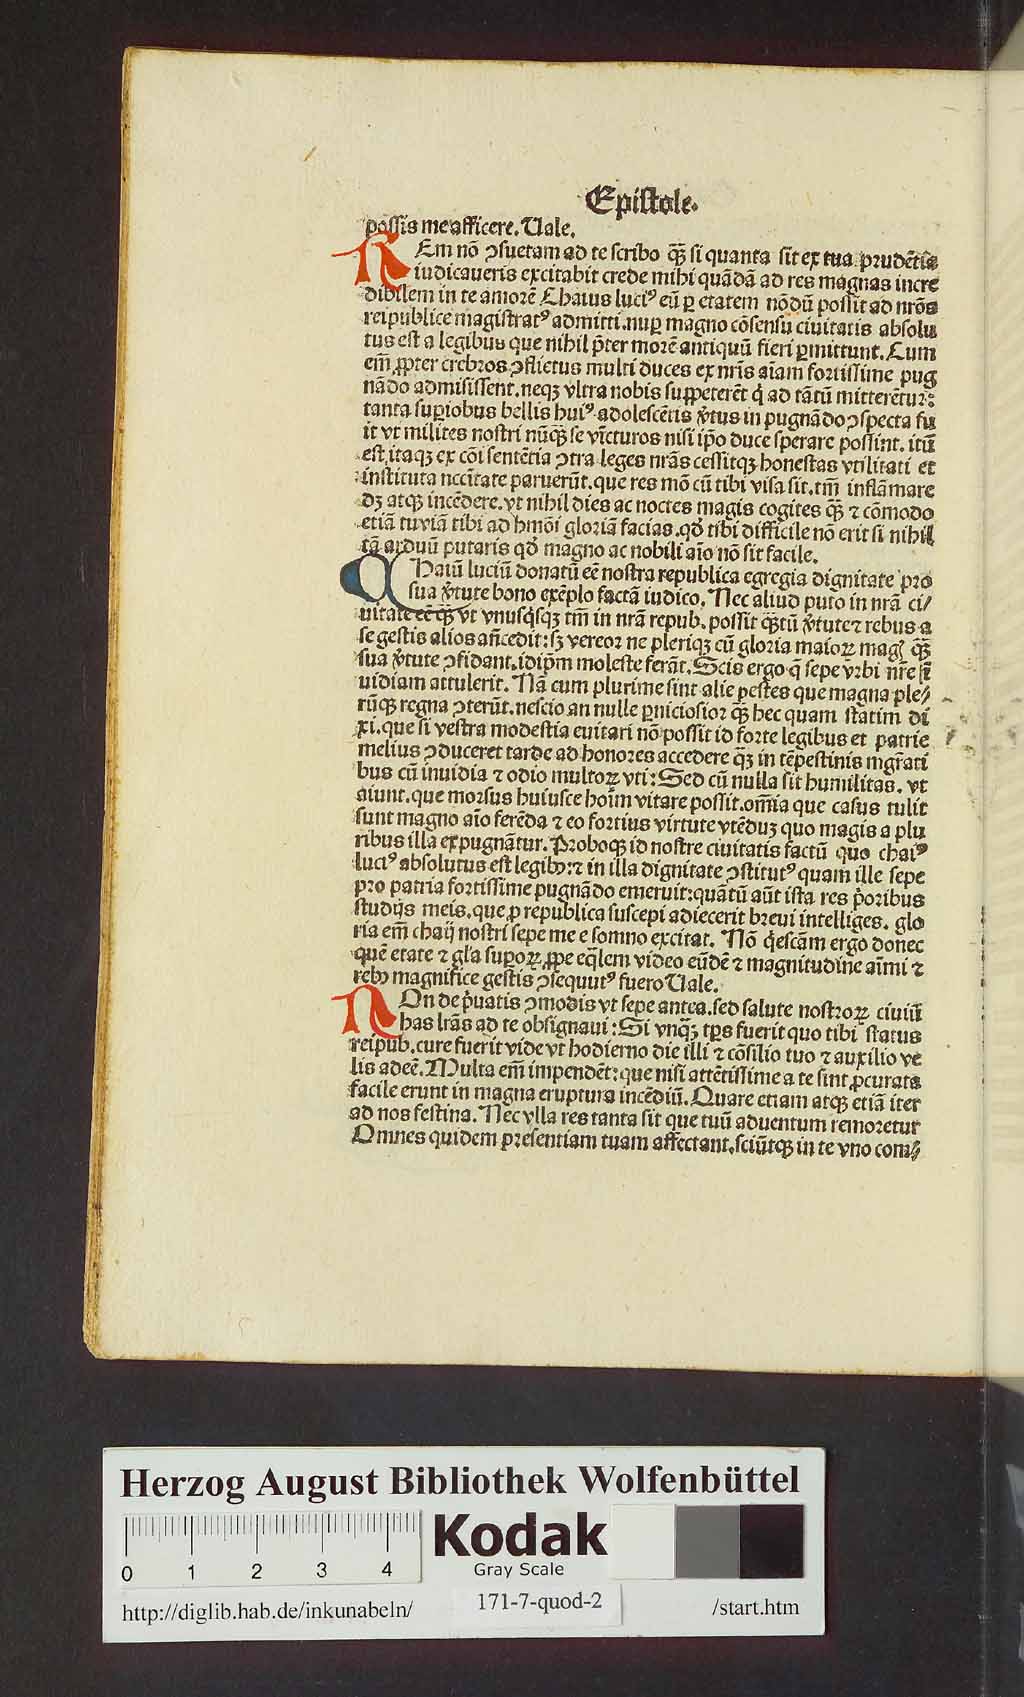 Epistole.
possis me afficere. Uale.
REm nō ↄsuetam ad te scribo q̄ꝫ si quanta sit ex tua prudētia
iudicaueris excitabit crede mihi quādā ad res magnas incre
dibilem in te amorē Chaius luciꝰ eū ꝑ etatem nōdū possit ad nr̄os
reipublice magistratꝰ admitti. nuꝑ magno cōsensu ciuitatis absolu
tus est a legibus que nihil p̄ter morē antiquū fieri ꝑmittunt. Cum
em̄ ꝓpter crebros ↄflictus multi duces ex nr̄is aīam fortissime pug
nādo admisissent. neqꝫ vltra nobis suꝓpeterēt q̇ ad tātū mitterētur:
tanta suꝑiobus bellis huiꝰ adolescētis v̓tus in pugnādo ↄspecta fu
it vt milites nostri nūq̄ꝫ se victuros nisi ip̄o duce sperare possint. itū
est. itaqꝫ ex cōi sentētia ↄtra leges nr̄as cessitqꝫ honestas vtilitati et
instituta nccītate paruerūt. que res mō cū tibi visa sit. tm̄ inflāmare
dꝫ atqꝫ incēdere. vt nihil dies ac noctes magis cogites q̄ꝫ ⁊ cōmodo
etiā tuviā tibi ad hmōi gloriā facias. qd̓ tibi difficile nō erit si nihil
tā arduū putaris qd̓ magno ac nobili aīo nō sit facile.
CHaiū luciū donatū eē nostra republica egregia dignitate pro
sua v̓tute bono exēplo factā iudico. Nec aliud puto in nrā ci/
uitate eē q̄ꝫ vt vnusq̇sqꝫ tm̄ in nrā repub. possit q̄ꝫtū v̓tute ⁊ rebus a
se gestis alios añcedit: sꝫ vereor ne pleriqꝫ cū gloria maioꝝ mag̓ q̄ꝫ
sua v̓tute ↄfidant. idip̄m moleste ferāt. Scis ergo q̄ sepe vrbi nr̄e ī
uidiam attulerit. Nā cum plurime sint alie pestes que magna ple/
rūqꝫ regna ↄterūt. nescio an nulle ꝑniciosior q̄ꝫ hec quam statim di
xi. que si vestra modestia euitari nō possit id forte legibus et patrie
melius ↄduceret tarde ad honores accedere q̄ꝫ in tēpestinis mgr̄ati
bus cū inuidia ⁊ odio multoꝝ vti: Sed cū nulla sit humilitas. vt
aiunt. que morsus huiusce hoīm vitare possit. om̄ia que casus tulit
sunt magno aīo ferēda ⁊ eo fortius virtute vtēduꝫ quo magis a plu
ribus illa expugnātur. Proboqꝫ id nostre ciuitatis factū quo chaiꝰ
luciꝰ absolutus est legibꝫ: ⁊ in illa dignitate ↄstitutꝰ quam ille sepe
pro patria fortissime pugnādo emeruit: quātū aūt ista res p̓oribus
studijs meis. que ꝓ republica suscepi adiecerit breui intelliges. glo
ria em̄ chaij nostri sepe me e somno excitat. Nō q̇escam ergo donec
quē etate ⁊ gl̓a suꝑoꝝ ꝓpe eq̄lem video eūdē ⁊ magnitudine aīmi ⁊
rebꝫ magnifice gestis ↄsequutꝰ fuero Uale.
NOn de p̓uatis ↄmodis vt sepe antea. sed salute nostroꝝ ciuiū
has lr̄as ad te obsignaui: Si vnq̄ꝫ tp̄s fuerit quo tibi status
reipub. cure fuerit vide vt hodierno die illi ⁊ cōsilio tuo ⁊ auxilio ve
lis adeē. Multa em̄ impendēt: que nisi attētissime a te sint ꝓcurata
facile erunt in magna eruptura incēdiū. Quare etiam atqꝫ etiā iter
ad nos festina. Nec vlla res tanta sit que tuū aduentum remoretur
Omnes quidem presentiam tuam affectant. sciūtqꝫ in te vno com/
Herzog August Bibliothek Wolfenbüttel
0 1 2 3 4
Kodak
Gray Scale
http://diglib.hab.de/inkunabeln/
171-7-quod-2
/start.htm